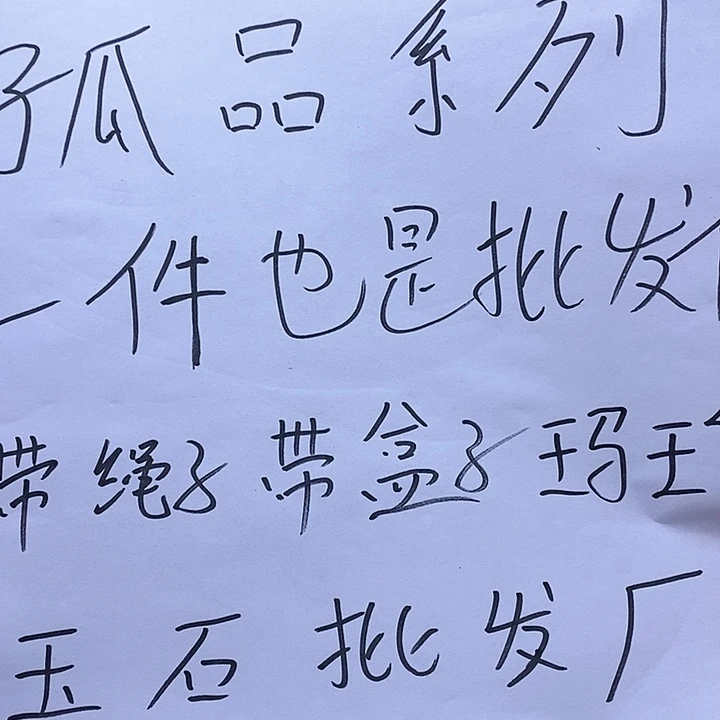 孤品系列
一件也是批发
带绳子带盒子玛
玉石批发厂